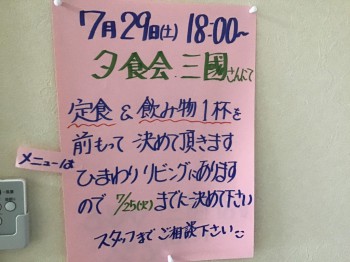 7月29日(土) 18:00~
夕食会 三國さんにて
定食 & 飲み物1杯を
前もって 決めて頂きます
メニューは
ひまわり リビングにあります
ので 7/25(火)までに決めて下さい
スタッフまで ご相談下さい